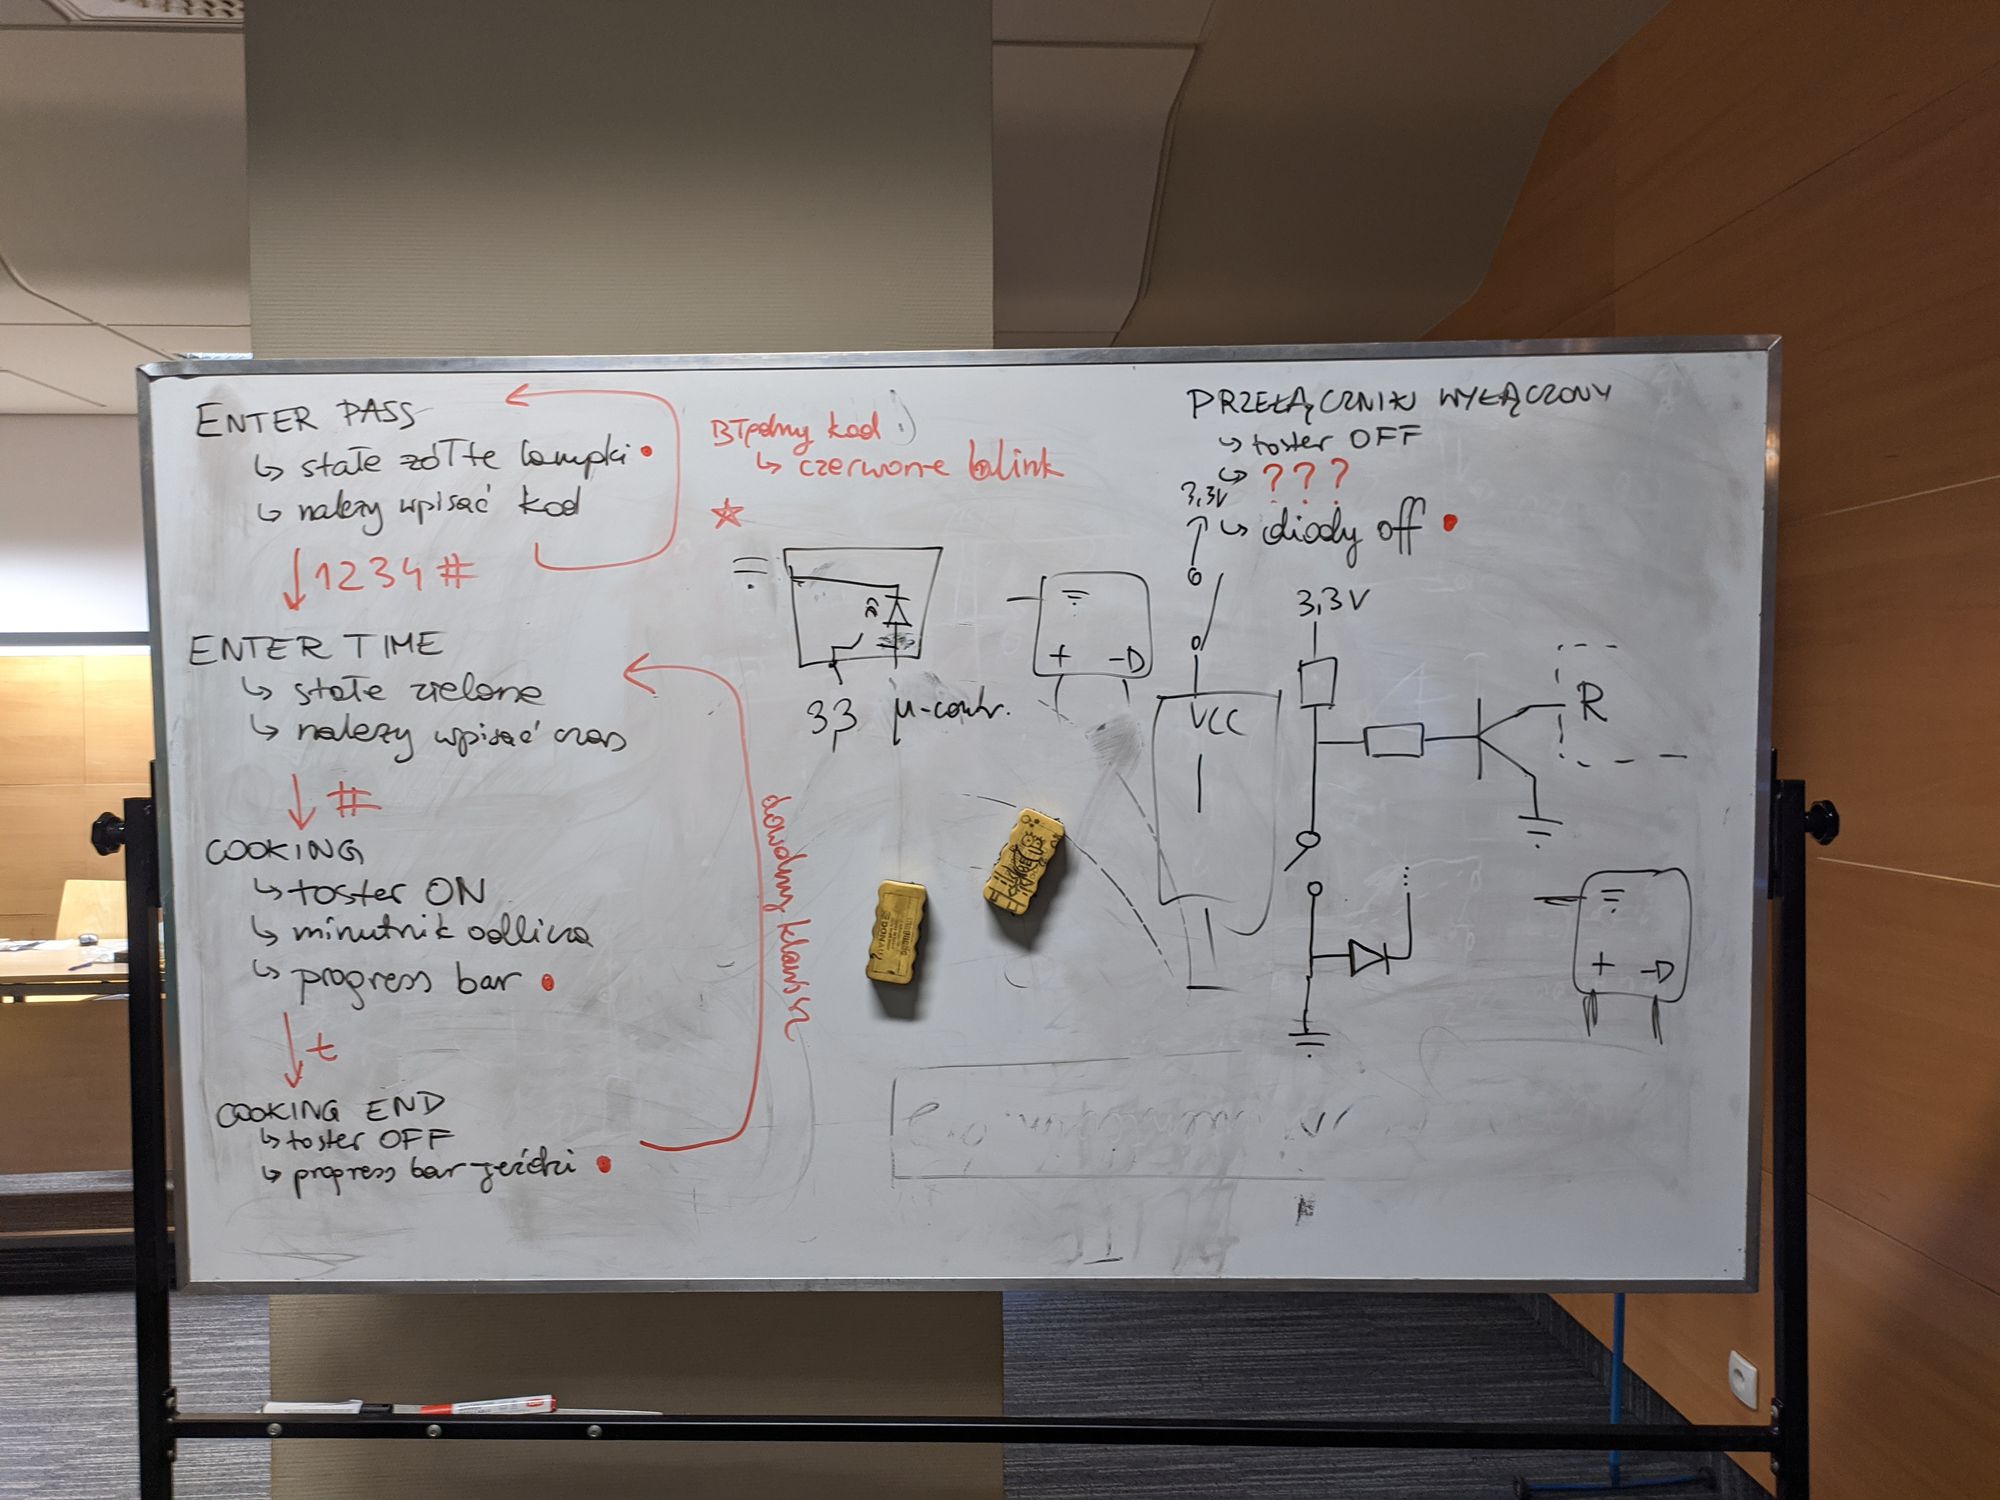 ENTER PASS
↳ stałe żółte lampki •
↳ należy wpisać kod
↓ 1234 #
ENTER TIME
↳ stałe zielone
↳ należy wpisać czas
↓ #
COOKING
↳ toster ON
↳ minutnik odlicza
↳ progress bar •
↓ t
COOKING END
↳ toster OFF
↳ progress bar jeździ •
dowolny klawisz
Błędny kod
↳ czerwone blink
3,3 μ-contr.
+ -D
PRZEŁĄCZNIK WYŁĄCZONY
↳ toster OFF
↳ ???
↳ diody off •
3,3V
VCC
3,3V
R
+ -D